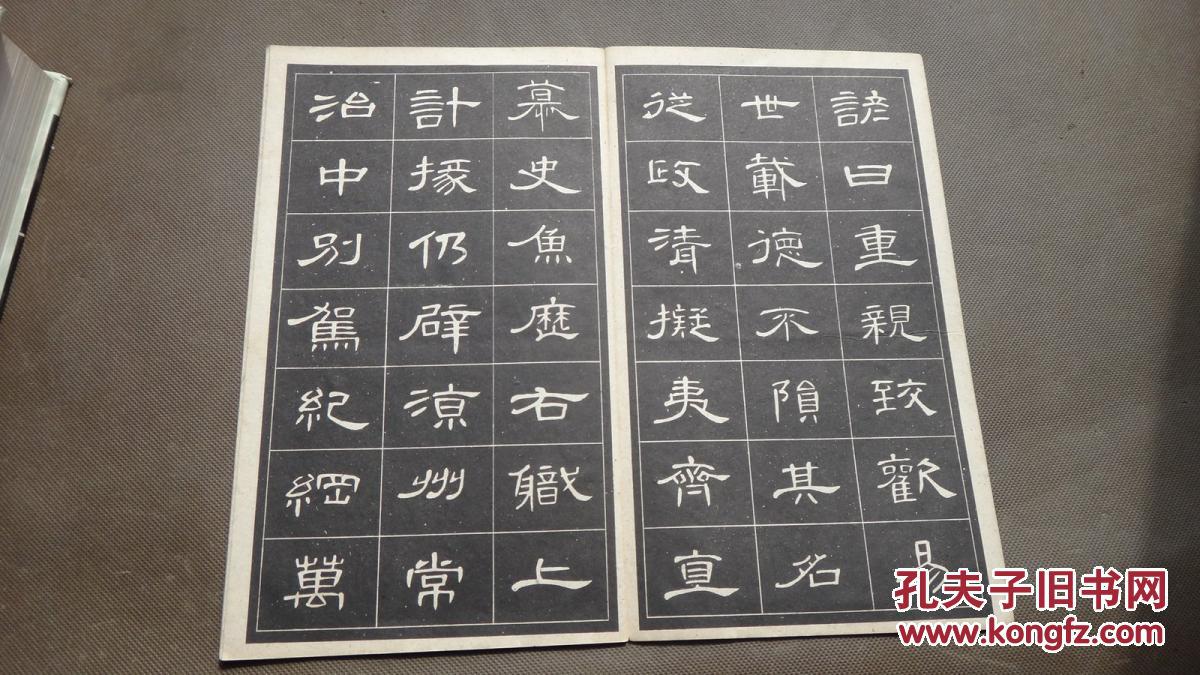 諺曰重親致歡曷
世載德不隕其名
從政清擬夷齊直
慕史魚歷右職上
計掾仍辟涼州常
治中別駕紀綱萬
孔夫子旧书网
www.kongfz.com